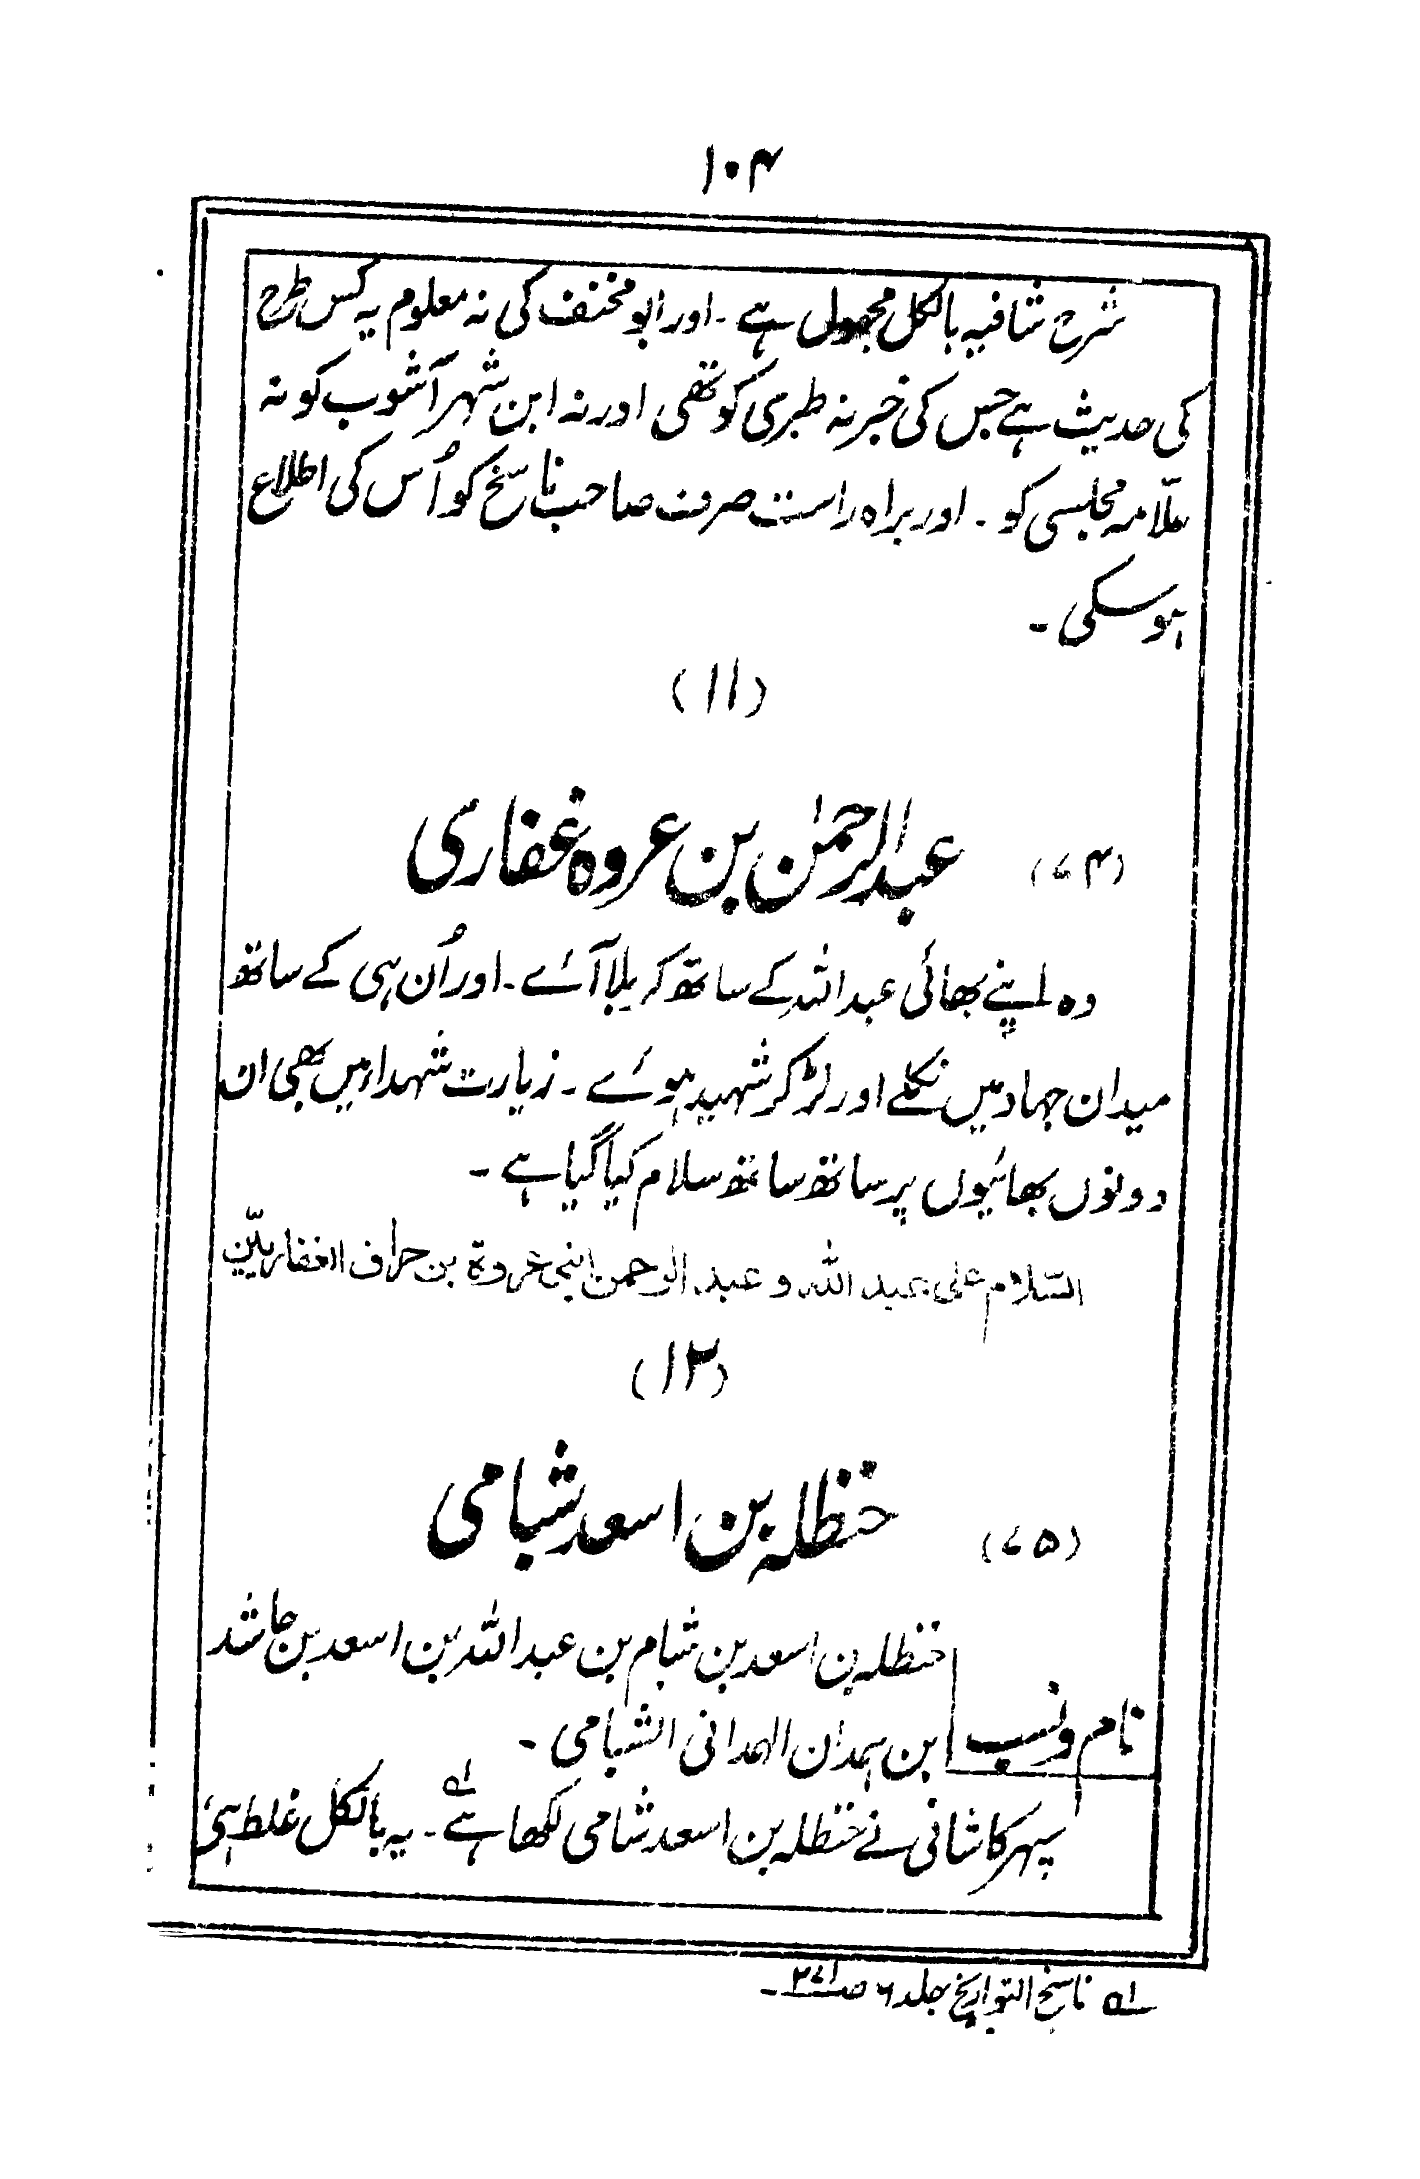 ۱۰۴
شرح شافیہ بالکل مجہول ہے ۔ اور ابو مخنف کی نہ معلوم یہ کس طرح
کی حدیث ہے جس کی خبر نہ طبری کو تھی اور نہ ابن شہر آشوب کو نہ
علّامہ مجلسی کو ۔ اور براہ راست صرف صاحب ناسخ کو اُس کی اطلاع
ہو سکی ۔
(۱۱)
(۷۴) عبدالرحمٰن بن عروہ غفاری
وہ اپنے بھائی عبداللہ کے ساتھ کربلا آئے ۔ اور اُن ہی کے ساتھ
میدان جہاد میں نکلے اور لڑ کر شہید ہوئے ۔ زیارت شہداء میں بھی ان
دونوں بھائیوں پر ساتھ ساتھ سلام کیا گیا ہے ۔
السّلام علی عبد اللہ و عبد الرحمن ابنی عروة بن حراف الغفاریّین
(۱۲)
(۷۵) حنظلہ بن اسعد شبامی
نام و نسب حنظلہ بن اسعد بن شبام بن عبداللہ بن اسعد بن حاشد
ابن ہمدان الھمدانی الشبامی ۔
سپہر کاشانی نے حنظلہ بن اسعد شامی لکھا ہے ۱ه ۔ یہ بالکل غلط ہے
۱ه ناسخ التواریخ جلد ۶ صـ ۲۷۱ ۔